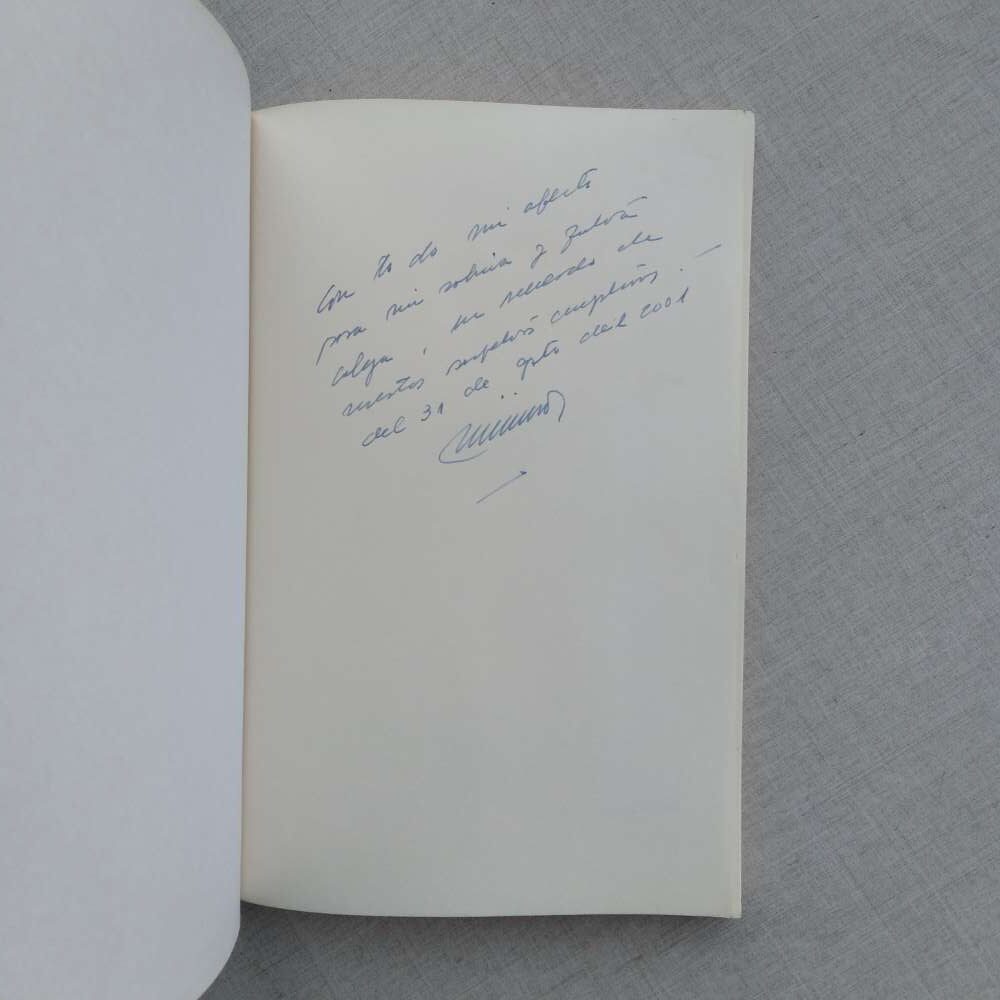 Con todo mi afecto
para mi sobrina y futura
colega, un recuerdo de
nuestros respectivos cumpleaños. —
del 31 de agosto del 2001